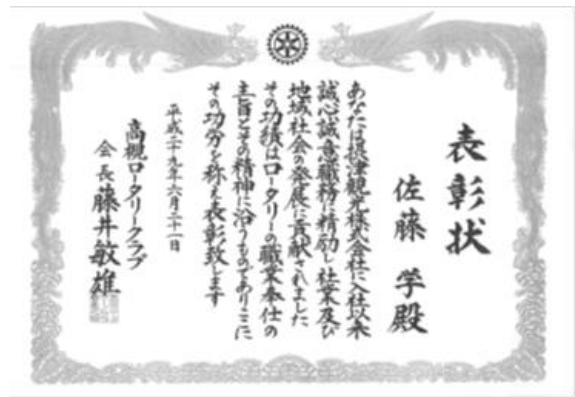 表彰状
佐藤 学殿
あなたは摂津観光株式会社に入社以来
誠心誠意職務に精励し社業及び
地域社会の発展に貢献されました
その功績はロータリーの職業奉仕の
主旨とその精神に沿うものでありここに
その功労を称え表彰致します
平成二十九年六月二十一日
高槻ロータリークラブ
会長 藤井敏雄